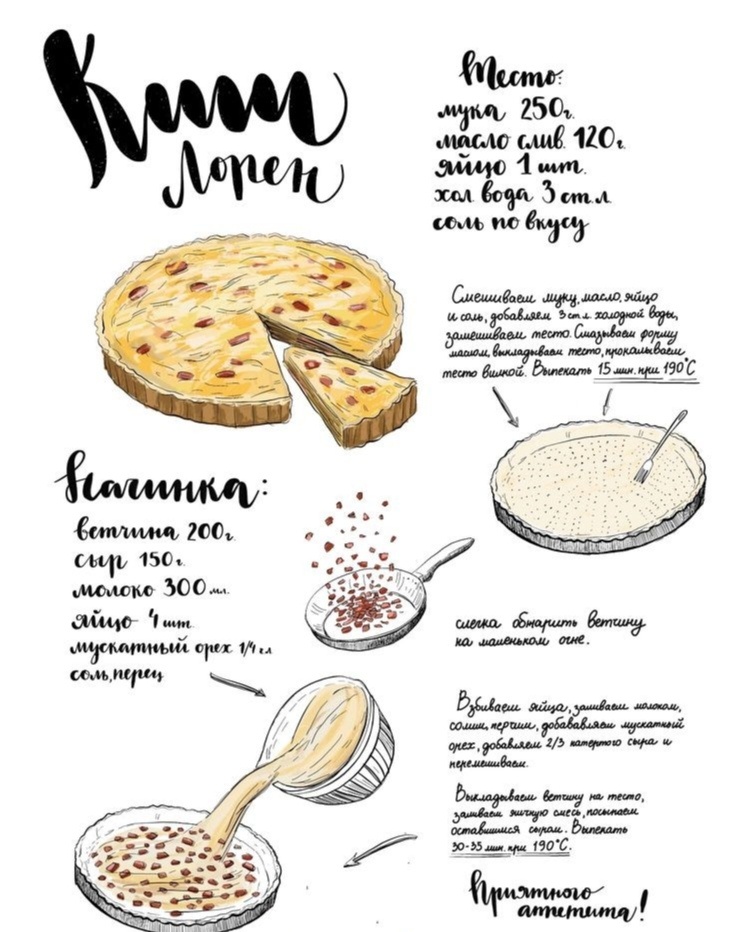 Киш
Лорен
Тесто:
мука 250г.
масло слив. 120г.
яйцо 1 шт.
хол. вода 3 ст.л.
соль по вкусу
Смешиваем муку, масло, яйцо
и соль, добавляем 3 ст.л. холодной воды,
замешиваем тесто. Смазываем форму
маслом, выкладываем тесто, прокалываем
тесто вилкой. Выпекать 15 мин. при 190°С
Начинка:
ветчина 200г.
сыр 150г.
молоко 300мл.
яйцо 4 шт.
мускатный орех 1/4 ч.л
соль, перец
слегка обжарить ветчину
на маленьком огне.
Взбиваем яйца, заливаем молоком,
солим, перчим, добававляем мускатный
орех, добавляем 2/3 натертого сыра и
перемешиваем.
Выкладываем ветчину на тесто,
заливаем яичную смесь, посыпаем
оставшимся сыром. Выпекать
30-35 мин. при 190°С.
Приятного
аппетита!